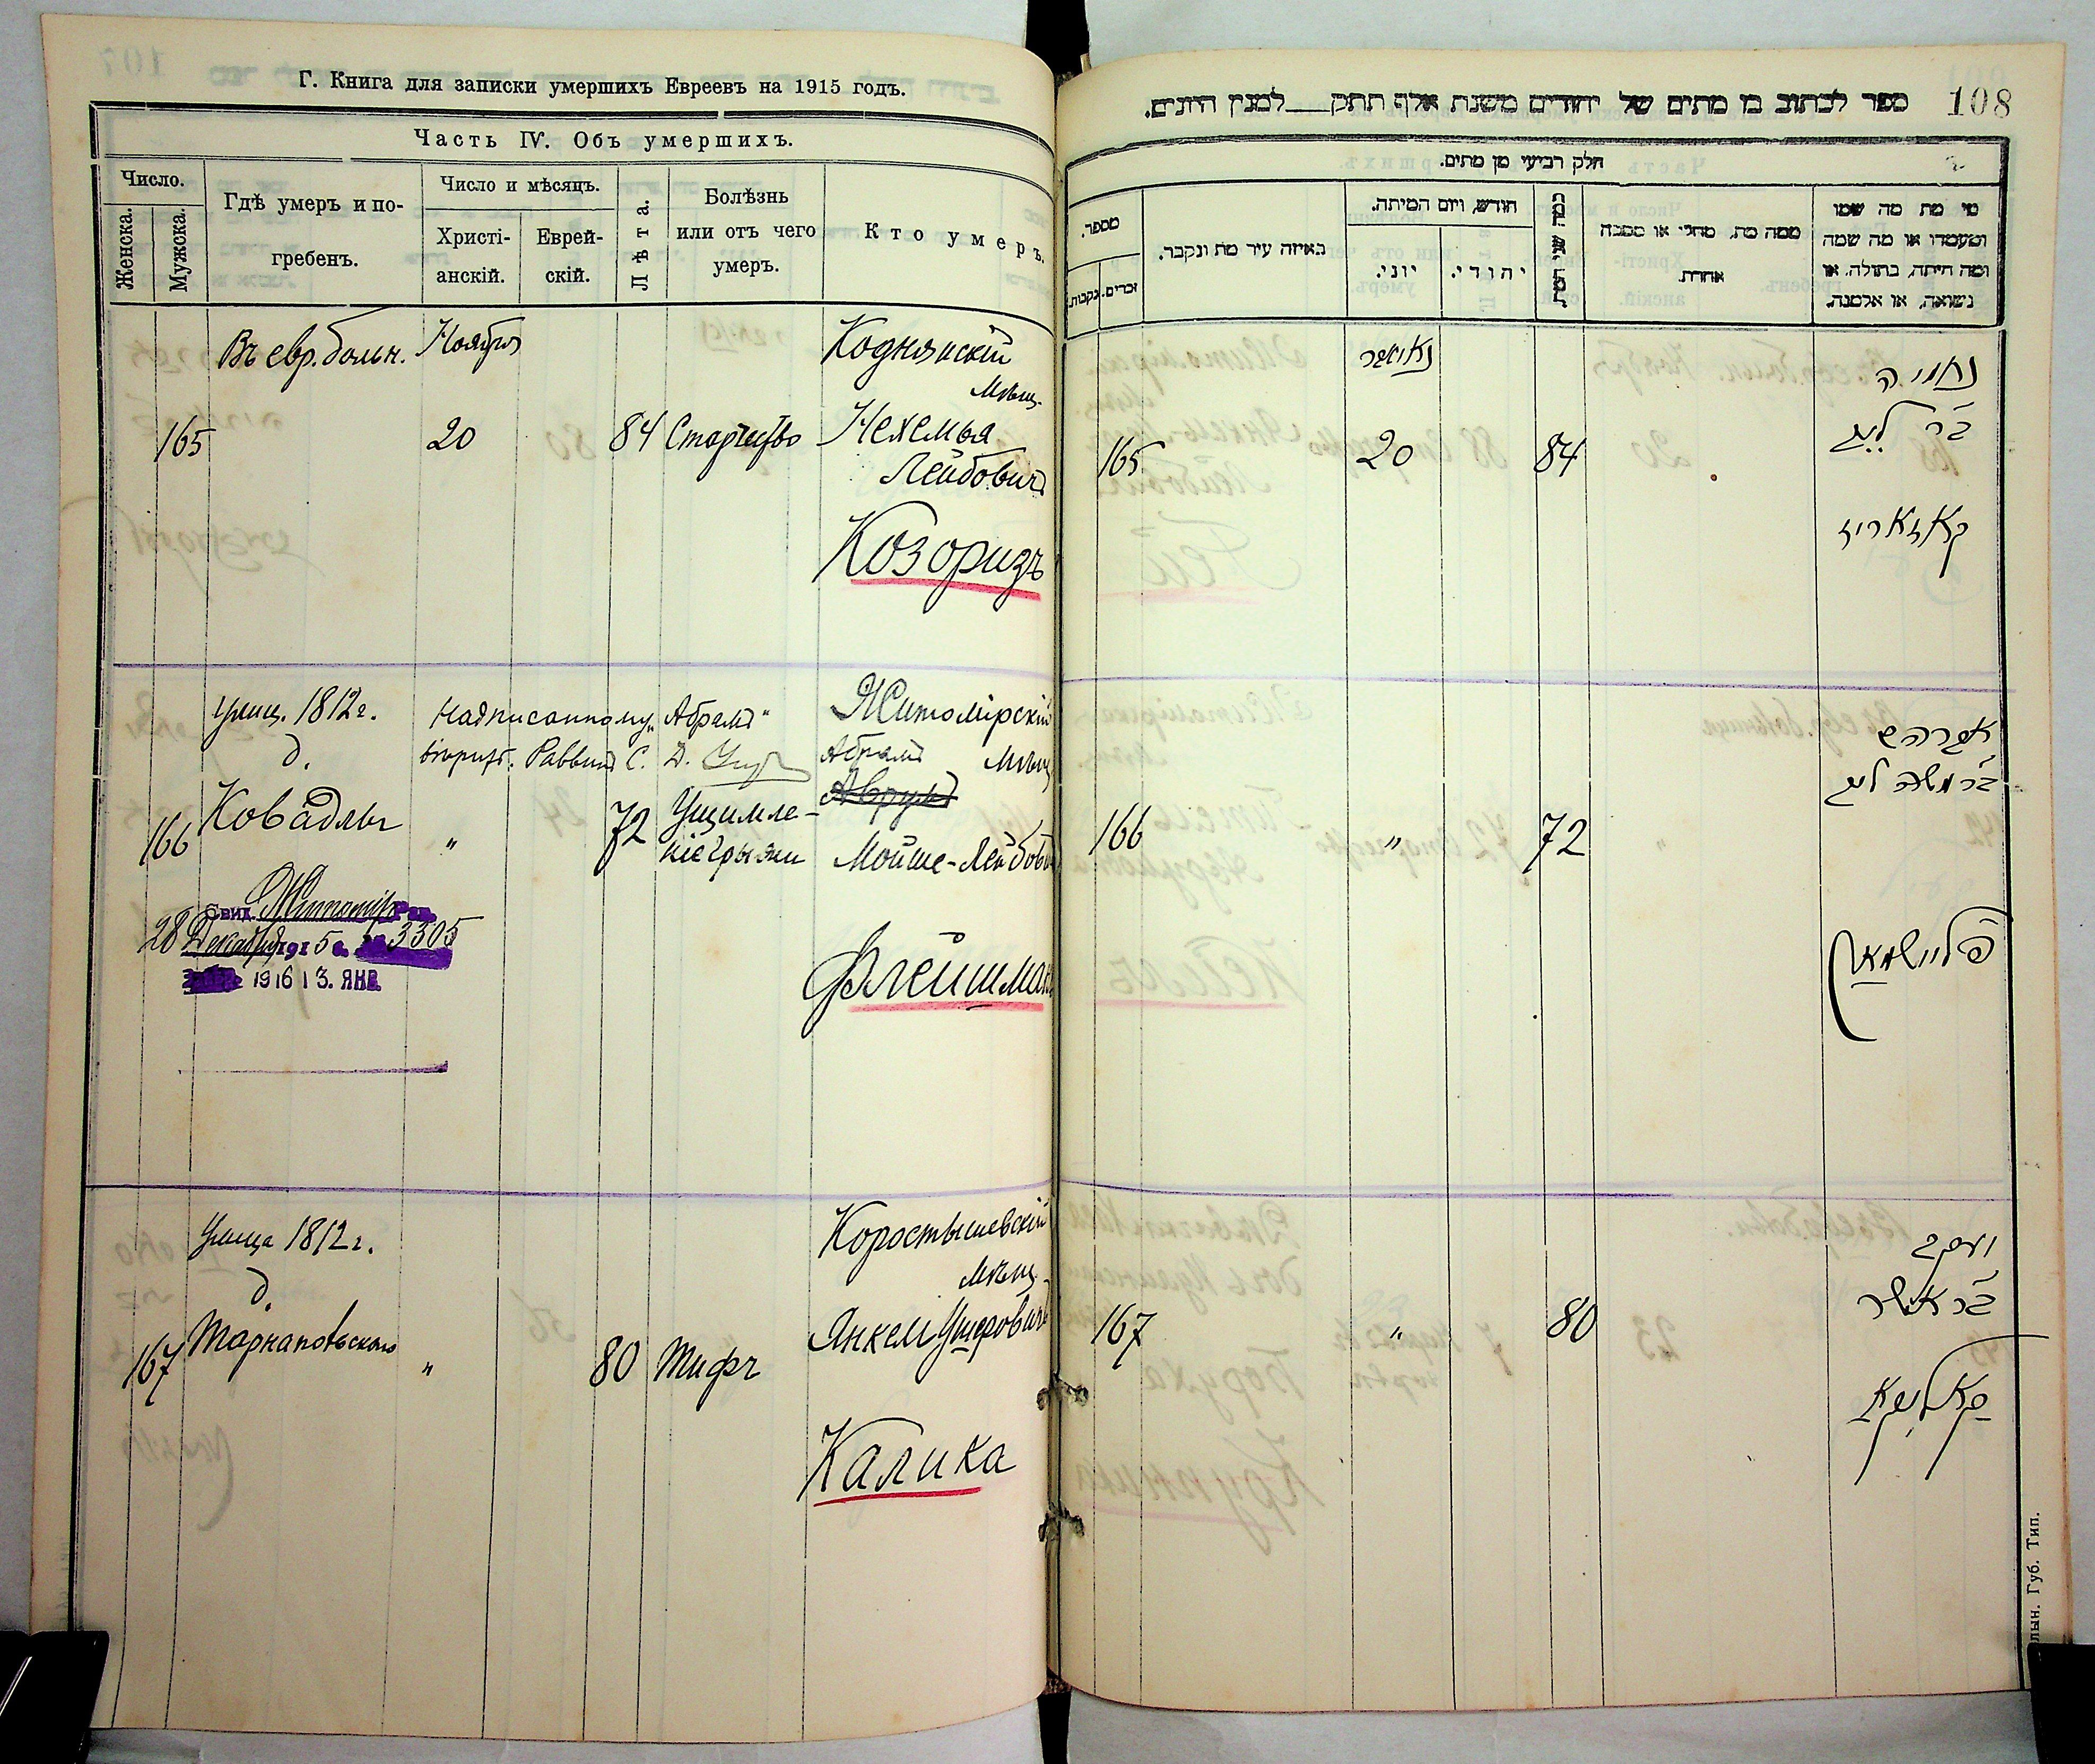 Г. Книга для записки умершихъ Евреевъ на 1915 годъ.
Часть IV. Объ умершихъ.
Число.
Женска.
Мужска.
Гдѣ умеръ и по-
гребенъ.
Число и мѣсяцъ.
Христі-
анскій.
Еврей-
скій.
Лѣта.
Болѣзнь
или отъ чего
умеръ.
Кто умеръ.
Въ евр. больн.
Ноября
Коднянскій
мѣщ.
165
20
84
Старчество
Нехемья
Лейбовичъ
Козоризъ
улиц. 1812 г.
Надписанному „Абрамъ"
Житомірскій
д.
Раввинъ С. Д.
Абрамъ
мѣщ
Аврумъ
166
Ковадлы
"
72
Ущимле-
ніе грыжи
Мойше-Лейбов
Свид. Житомір Рав.
28 Декабря 1915 г. 3305
1916 13. ЯНВ.
Флейшман
Улица 1812 г.
Коростышевскій
д.
мѣщ.
167
Тарнаповьского
"
80
Тифъ
Янкель Ушеровичъ
Калика
108
ספר לכתוב בו מתים של יהודים משנת אלף תתק___למנין היונים.
חלק רביעי מן מתים.
מספר.
זכרים.
נקבות.
באיזה עיר מת ונקבר.
חודש, ויום המיתה.
יוני.
יהודי.
ממה מת, מחלי או מסבה
אחרת.
מי מת מה שמו
ומעמדו או מה שמה
ומה היתה, בתולה, או
נשואה, או אלמנה.
נאויאבר
נחמיה
בר ליב
165
20
84
קאזאריז
אברהם
בר משה ליב
166
"
72
פליישמאן
יעקב
בר אשר
167
"
80
קאליקא
лын. Губ. Тип.